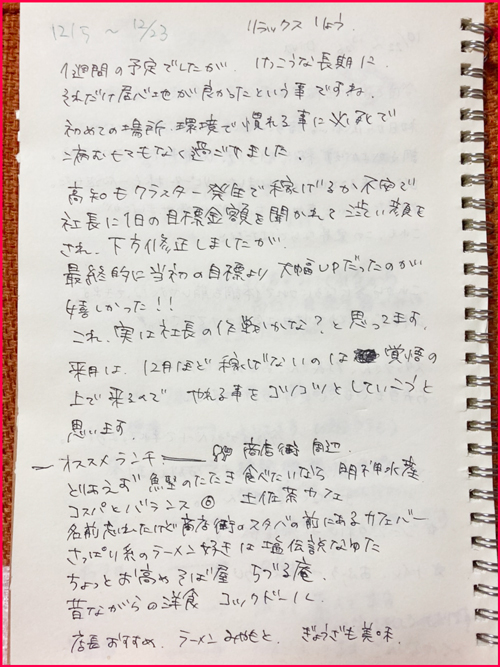 12/5 ～ 12/23 リラックス しょう
1週間の予定でしたが けっこうな長期に
それだけ居心地が良かったという事ですね。
初めての場所・環境で慣れる事に必死で
病むヒマもなく過ごせました。
高知もクラスター発生で稼げるか不安で
社長に1日の目標金額を聞かれて渋い顔を
され、下方修正しましたが、
最終的に当初の目標より大幅UPだったのが
嬉しかった!!
これ、実は社長の作戦かな?と思ってます。
来月は、12月ほど稼げないのは覚悟の
上で来るので やれる事をコツコツとしていこうと
思います。
オススメランチ 商店街 周辺
とりあえず魚のたたき食べたいなら 明神水産
コスパとバランス◎ 土佐茶カフェ
名前忘れたけど商店街のスタバの前にあるカフェバー
さっぱり系のラーメン好きは塩伝説なゆた
ちょっとお高めそば屋 ちづる庵
昔ながらの洋食 コックドール
店長おすすめ ラーメンみやもと、ぎょうざも美味